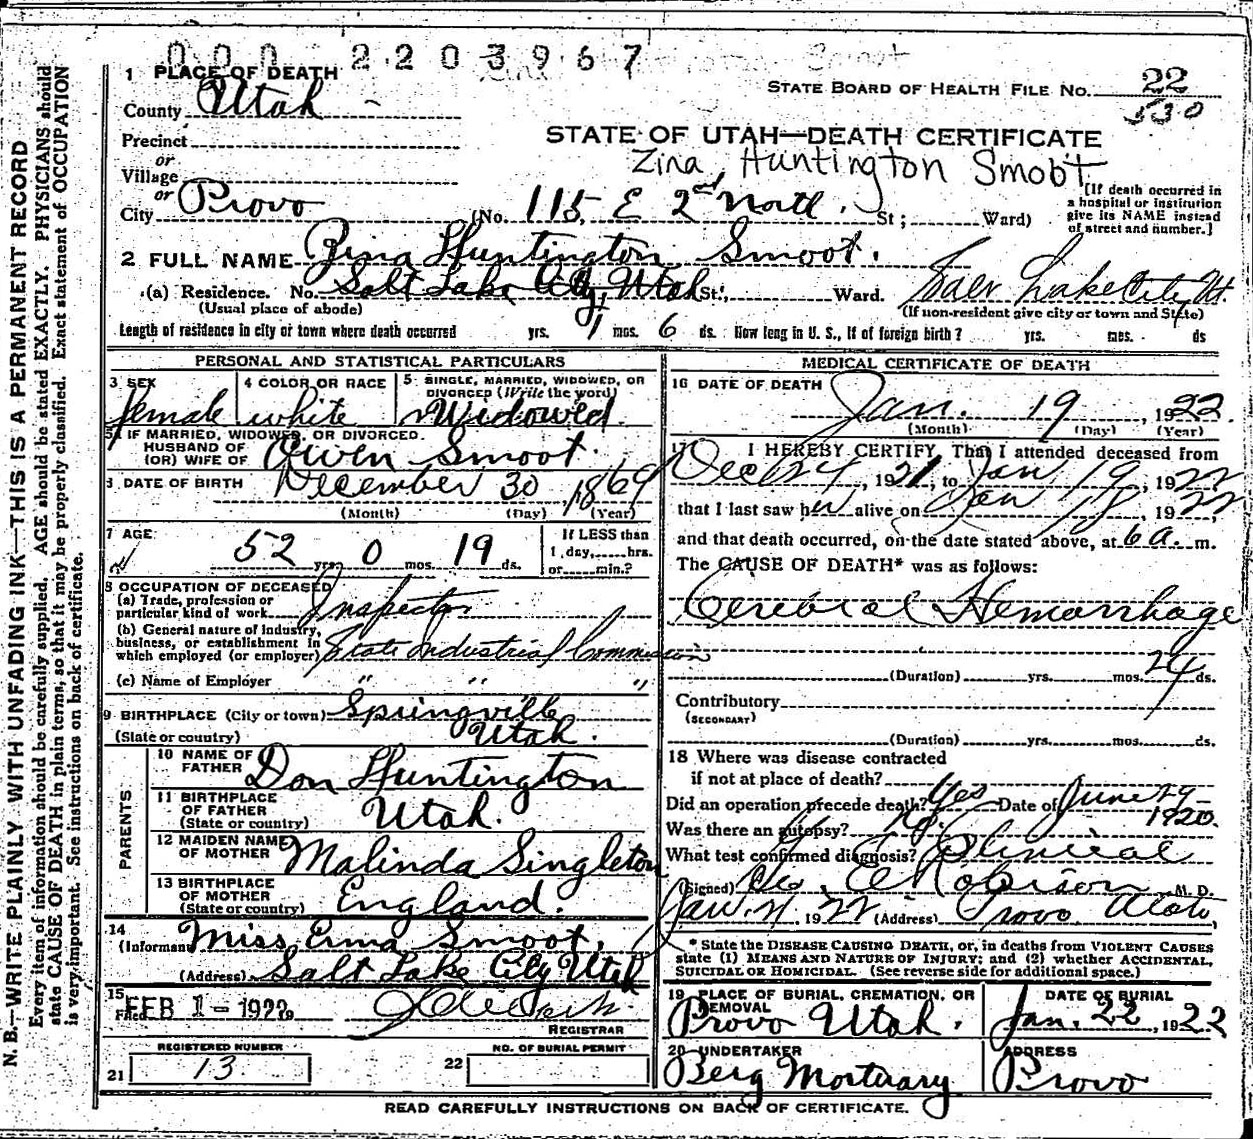 000 2203967
1 PLACE OF DEATH
STATE BOARD OF HEALTH FILE NO. 22
530
County Utah
STATE OF UTAH—DEATH CERTIFICATE
Precinct
or
Village
Zina Huntington Smoot
or
City Provo (No. 115 E 2nd North. St; Ward)
[If death occurred in
a hospital or institution
give its NAME instead
of street and number.]
2 FULL NAME Zina Huntington Smoot.
(a) Residence. No. Salt Lake City, Utah St., Ward. Salt Lake City Ut.
(Usual place of abode) (If non-resident give city or town and State)
Length of residence in city or town where death occurred yrs. 1 mos. 6 ds. How long in U. S., if of foreign birth? yrs. mos. ds
PERSONAL AND STATISTICAL PARTICULARS
3 SEX female
4 COLOR OR RACE white
5 SINGLE, MARRIED, WIDOWED, OR
DIVORCED (Write the word)
Widowed
5A IF MARRIED, WIDOWED, OR DIVORCED.
HUSBAND OF
(OR) WIFE OF Owen Smoot.
6 DATE OF BIRTH December 30, 1869
(Month) (Day) (Year)
7 AGE 52 yrs. 0 mos. 19 ds.
If LESS than
1 day, hrs.
or min.?
8 OCCUPATION OF DECEASED
(a) Trade, profession or
particular kind of work Inspector
(b) General nature of industry,
business, or establishment in
which employed (or employer) State Industrial Commission
(c) Name of Employer " " "
9 BIRTHPLACE (City or town) Springville
(State or country) Utah.
PARENTS
10 NAME OF
FATHER Don Huntington
11 BIRTHPLACE
OF FATHER
(State or country) Utah.
12 MAIDEN NAME
OF MOTHER Malinda Singleton
13 BIRTHPLACE
OF MOTHER
(State or country) England.
14
(Informant Miss Erma Smoot,
(Address) Salt Lake City Utah
15
Filed FEB 1 - 1922
REGISTRAR
REGISTERED NUMBER
21 13
NO. OF BURIAL PERMIT
22
MEDICAL CERTIFICATE OF DEATH
16 DATE OF DEATH
Jan. 19, 1922
(Month) (Day) (Year)
17 I HEREBY CERTIFY, That I attended deceased from
Dec 24, 1921, to Jan 19, 1922
that I last saw her alive on Jan 18, 1922,
and that death occurred, on the date stated above, at 6 a. m.
The CAUSE OF DEATH* was as follows:
Cerebral Hemorrhage
(Duration) yrs. mos. 24 ds.
Contributory
(SECONDARY)
(Duration) yrs. mos. ds.
18 Where was disease contracted
if not at place of death?
Did an operation precede death? Yes Date of June 29 1920.
Was there an autopsy? No.
What test confirmed diagnosis? Clinical
(Signed) Geo. E Robison M. D.
Jan. 21, 1922 (Address) Provo Utah,
* State the DISEASE CAUSING DEATH, or, in deaths from VIOLENT CAUSES
state (1) MEANS AND NATURE OF INJURY; and (2) whether ACCIDENTAL,
SUICIDAL OR HOMICIDAL. (See reverse side for additional space.)
19 PLACE OF BURIAL, CREMATION, OR
REMOVAL
Provo Utah.
DATE OF BURIAL
Jan. 22, 1922
20 UNDERTAKER
Berg Mortuary
ADDRESS
Provo
READ CAREFULLY INSTRUCTIONS ON BACK OF CERTIFICATE.
N. B.—WRITE PLAINLY WITH UNFADING INK—THIS IS A PERMANENT RECORD
Every item of information should be carefully supplied. AGE should be stated EXACTLY. PHYSICIANS should
state CAUSE OF DEATH in plain terms, so that it may be properly classified. Exact statement of OCCUPATION
is very important. See instructions on back of certificate.